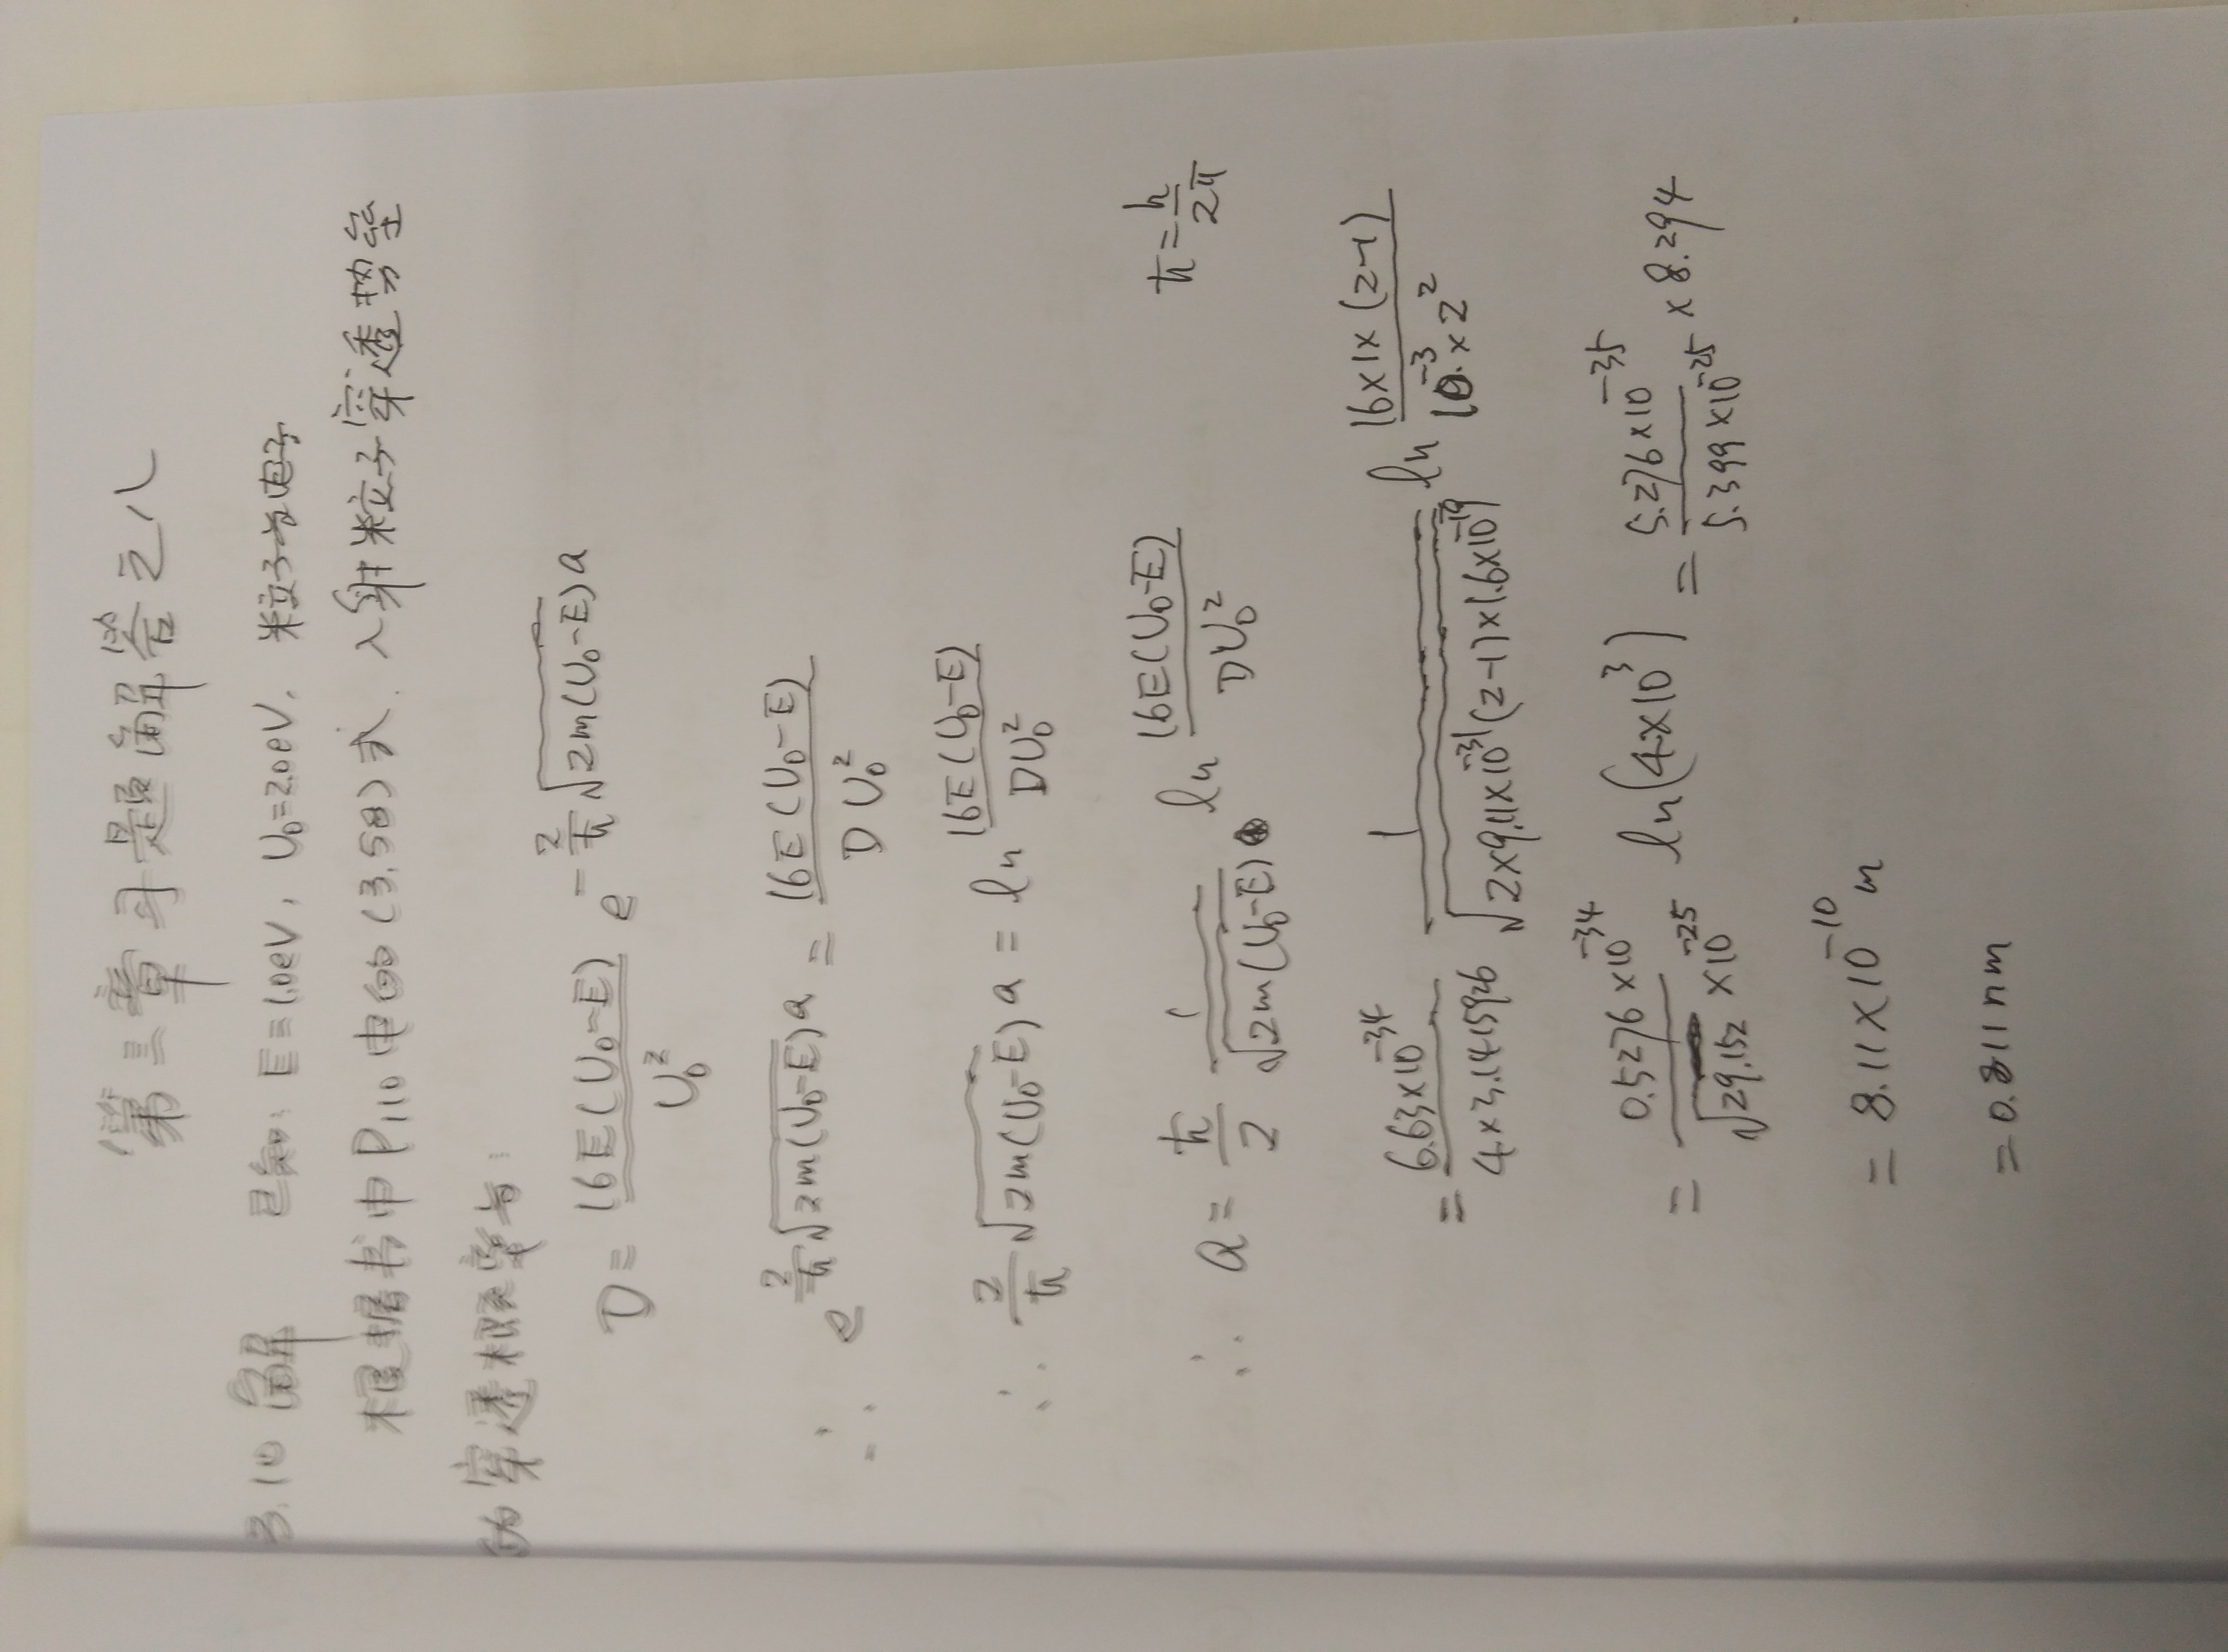 第三章习题解答之八
3.10 解 已知: E=1.0eV, U₀=2.0eV, 粒子为电子
根据书中P110中的(3.58)式, 入射粒子穿透势垒
的穿透概率为:
D = 16E(U₀-E)/U₀² e^(-2/ħ √(2m(U₀-E)) a)
∴ e^(2/ħ √(2m(U₀-E)) a) = 16E(U₀-E)/DU₀²
∴ 2/ħ √(2m(U₀-E)) a = ln 16E(U₀-E)/DU₀²
∴ a = ħ/2 1/√(2m(U₀-E)) ln 16E(U₀-E)/DU₀² ħ = h/2π
= 6.63×10⁻³⁴/4×3.1415926 1/√(2×9.11×10⁻³¹(2-1)×1.6×10⁻¹⁹) ln 16×1×(2-1)/10⁻³×2²
= 0.5276×10⁻³⁴/√29.152 ×10⁻²⁵ ln(4×10³) = 5.276×10⁻³⁵/5.399×10⁻²⁵ × 8.294
= 8.11×10⁻¹⁰ m
= 0.811nm